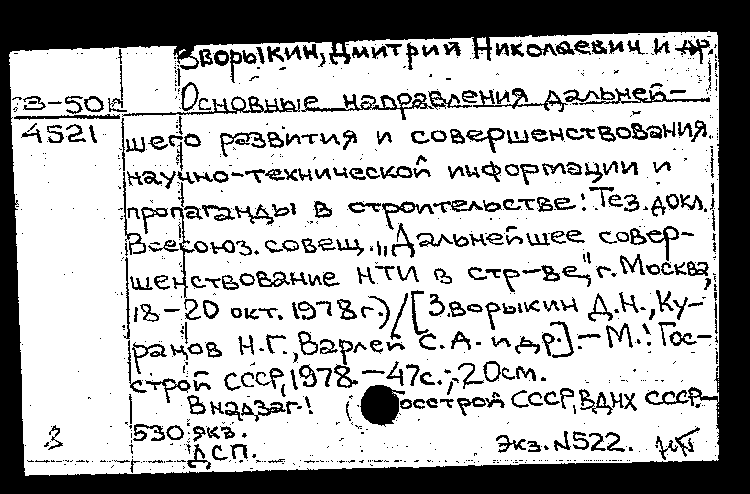 Зворыкин, Дмитрий Николаевич и др.
В-50
4521
Основные направления дальней-
шего развития и совершенствования
научно-технической информации и
пропаганды в строительстве: Тез. докл.
Всесоюз. совещ. „Дальнейшее совер-
шенствование НТИ в стр-ве", г. Москва,
18-20 окт. 1978г.)/[Зворыкин Д.Н., Ку-
ранов Н.Г., Варлей С.А. и др.].-М.: Гос-
строй СССР, 1978.-47с.; 20см.
В надзаг.: Госстрой СССР, ВДНХ СССР.-
530 экз.
ДСП.
Экз. N522.
3